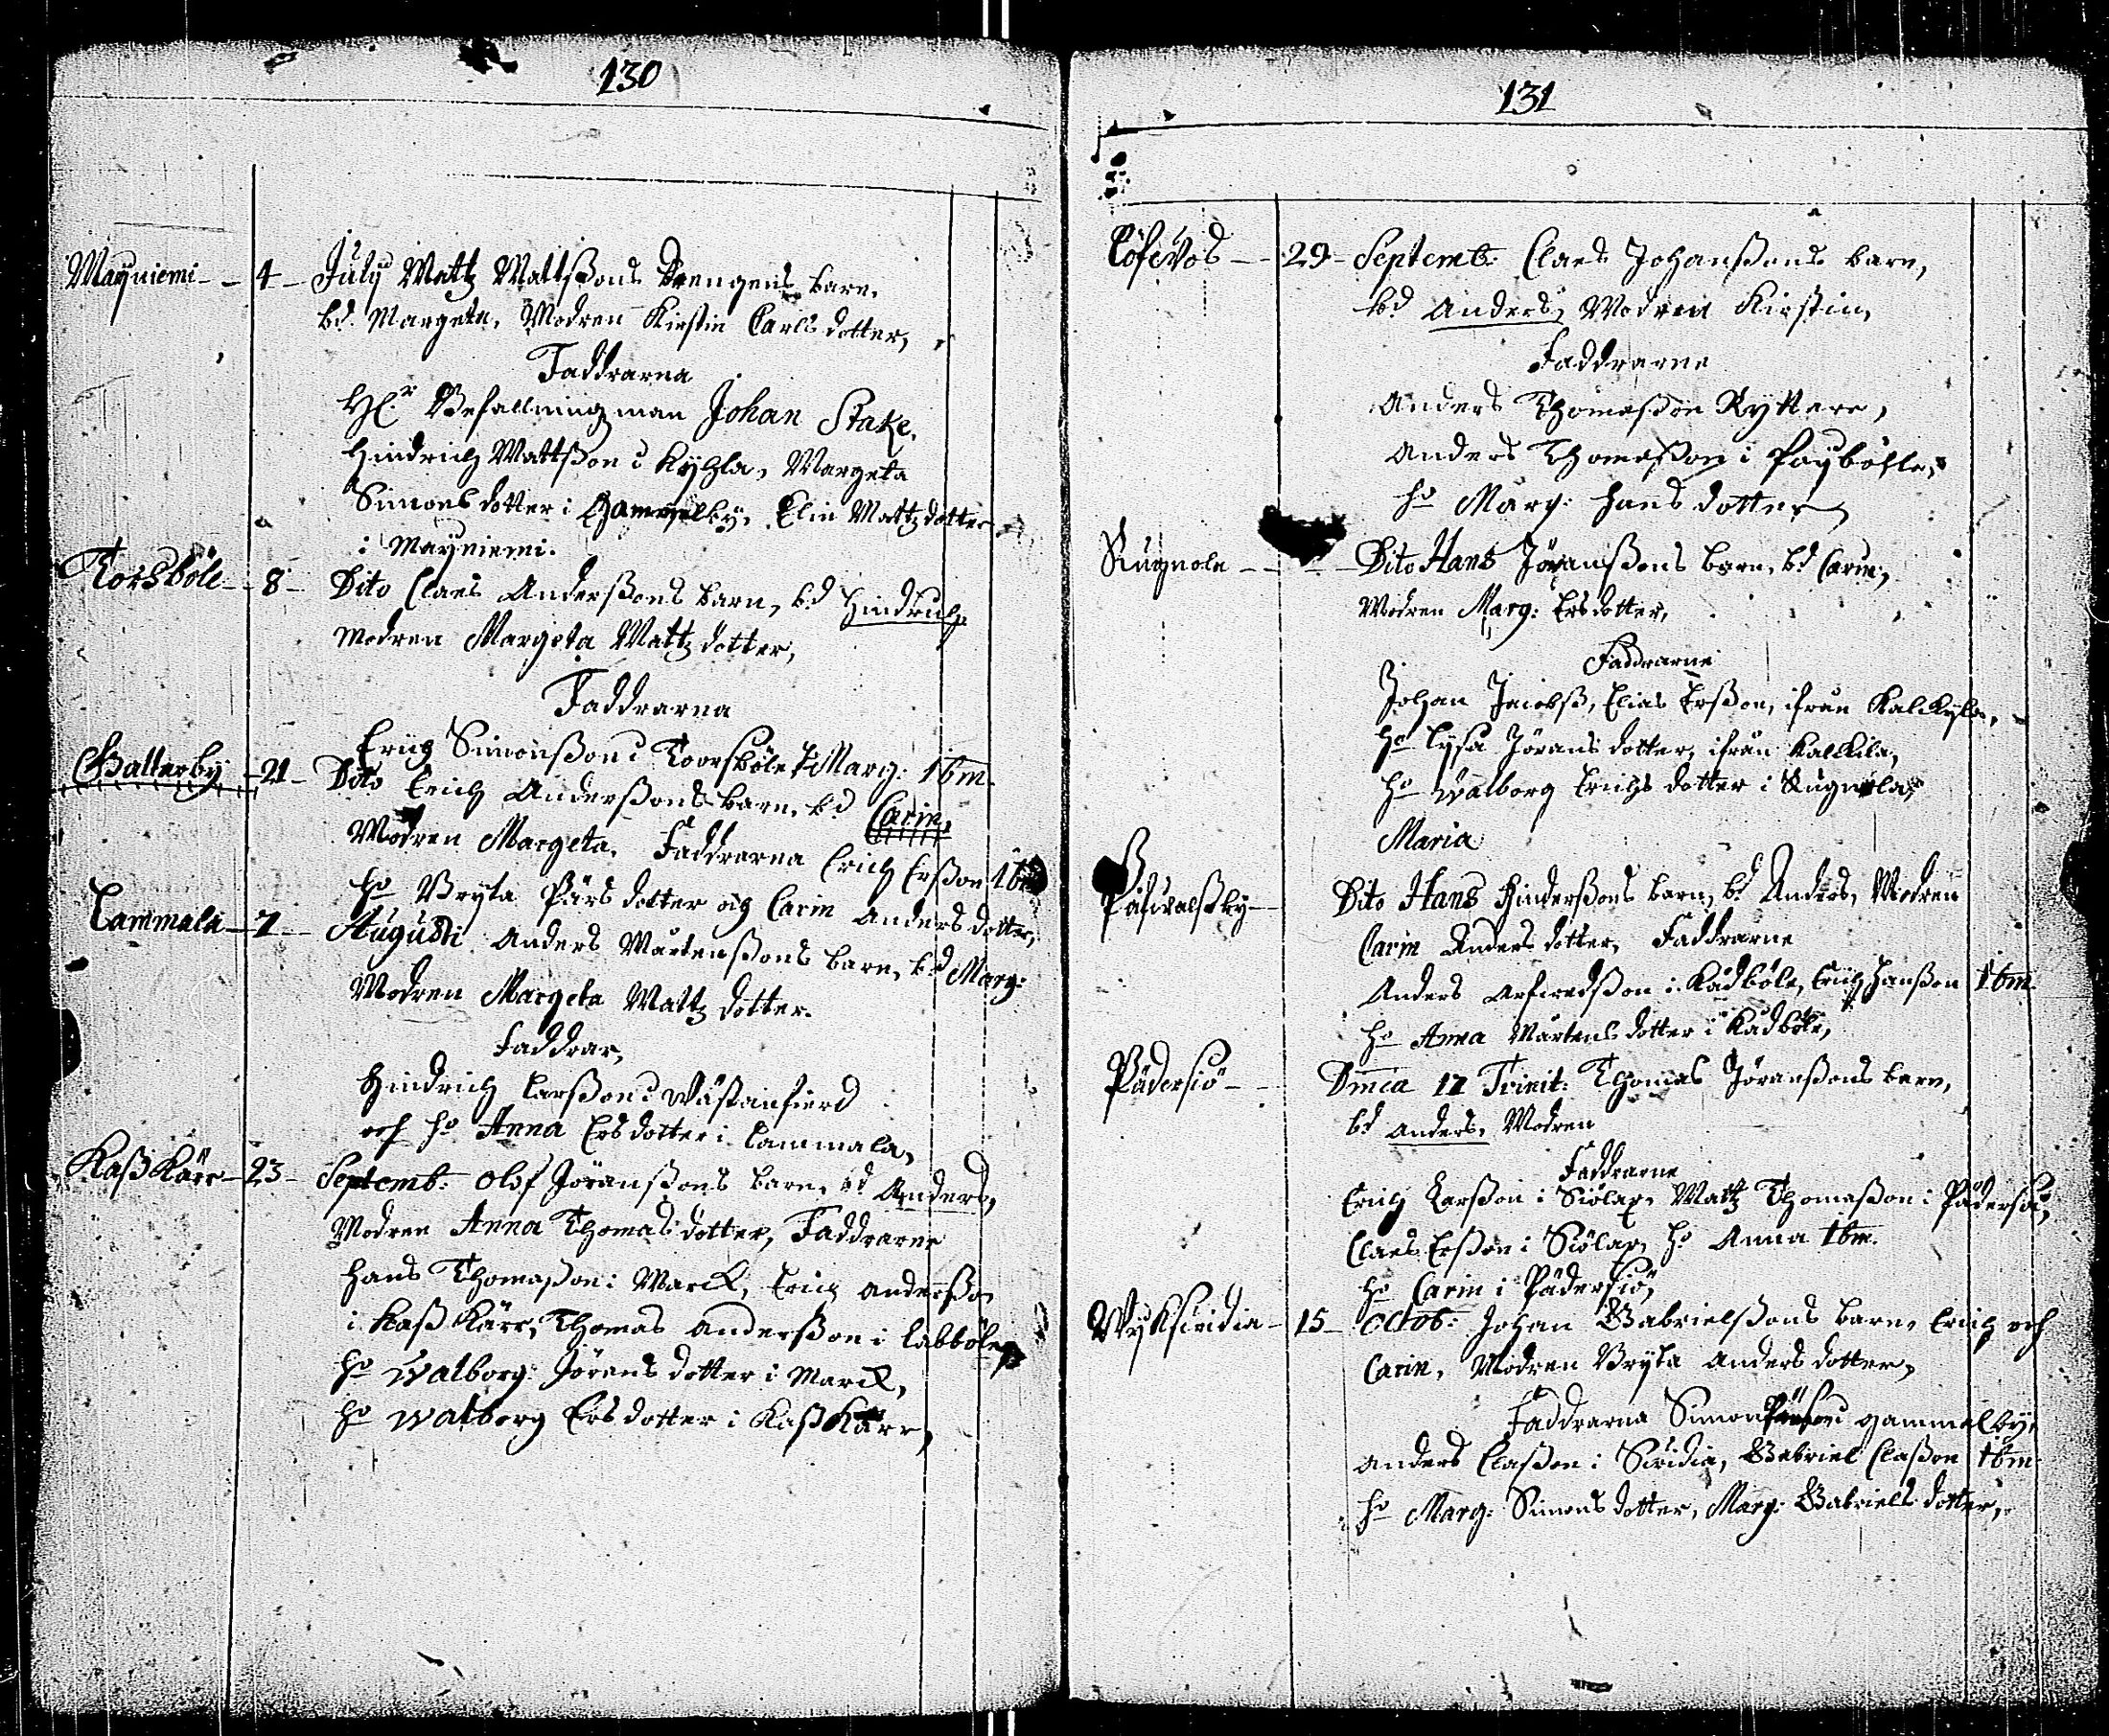 130
Mayniemi - - 4 - July Mattz Mattßons Drengens barn.
bd. Margeta, Modren Kirstin Carls dotter,
Faddrarna
Hl.r Befallningzman Johan Stake.
Hindrich Mattßon i Kyhla, Margeta
Simons dotter i Gammelby, Elin Mattz dotter
i Mayniemi.
Torsböle - 8 - Dito Claes Anderßons barn, bd Hindrich
modren Margeta Mattz dotter,
Faddrarna
Erich Simonßon i Toorsböle, Marg: ibm.
Galterby - 21 - Dito Erich Anderßons barn, bd Carin,
Modren Margeta. Faddrarna Erich Erßon ibm
ho Bryta Pärs dotter och Carin Anders dotter,
Lammala - 7 - Augusti Anders Mårtenßons barn, bd Marg:
Modren Margeta Mattz dotter.
Faddrar,
Hindrich Larßon i Wästanfierd
och ho Anna Ersdotter i Lammala,
Kaßkärr - 23 - Septemb: Olof Jöranßons barn, bd Anders,
Modren Anna Thomas dotter, Faddrarne
Hans Thomaßon i Marck, Erich Anderßon
i Kaß Kärr, Thomas Anderßon i Labböle
ho Walborg: Jörans dotter i Marck,
ho Walborg Ers dotter i Kaßkärr,
131
Löfwos - - 29 - Septemb: Claes Johanßons barn,
bd Anders, Modren Kirstin,
Faddrarne
Anders Thomeßon Ryttere,
Anders Thomeßon i Payböhle,
ho Marg: Hans dotter,
Rugnola - - - - Dito Hans Jöranßons barn, bd Carin,
Modren Marg: Ersdotter,
Faddrarne
Johan Jacobß, Elias Erßon, ifrån Kalckyla,
ho Lysa Jörans dotter, ifrån Kalkila,
ho Walborg Erichs dotter i Rugnola,
Maria
Påfwalsby - Dito Hans Hinderßons barn, bd Anders, Modren
Carin Anders dotter, Faddrarne
Anders Arfwedßon i Kådböle, Erich Hanßon ibm.
ho Anna Mårtens dotter i Kådböle,
Pädersiö - - Dmca 12 Trinit: Thomas Jöranßons barn,
bd Anders, Modren
Faddrarne
Erich Larßon i Siölax, Mattz Thomaßon i Pädersiö,
Claes Erßon i Siölax, ho Anna ibm.
ho Carin i Pädersiö,
- 15 - Octob: Johan Gabrielßons barn, Erich och
Carin, Modren Bryta Anders dotter,
Faddrarna Simon Gammelby,
Anders Claßon i Siridia, Gabriel Claßon ibm
ho Marg: Simons dotter, Marg: Gabriels dotter,